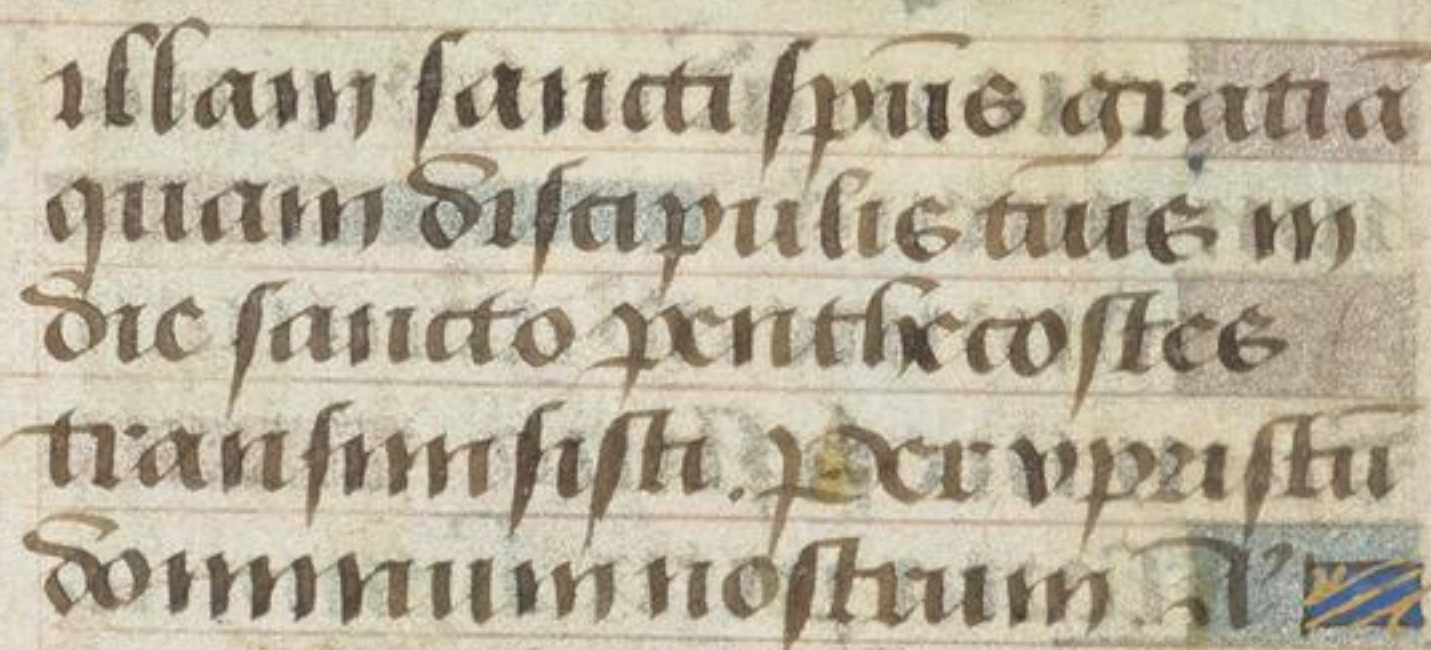 illam sancti spūs gratiā
quam discipulis tuis in
die sancto penthecostes
transmisisti. per xpristū
dominum nostrum A'